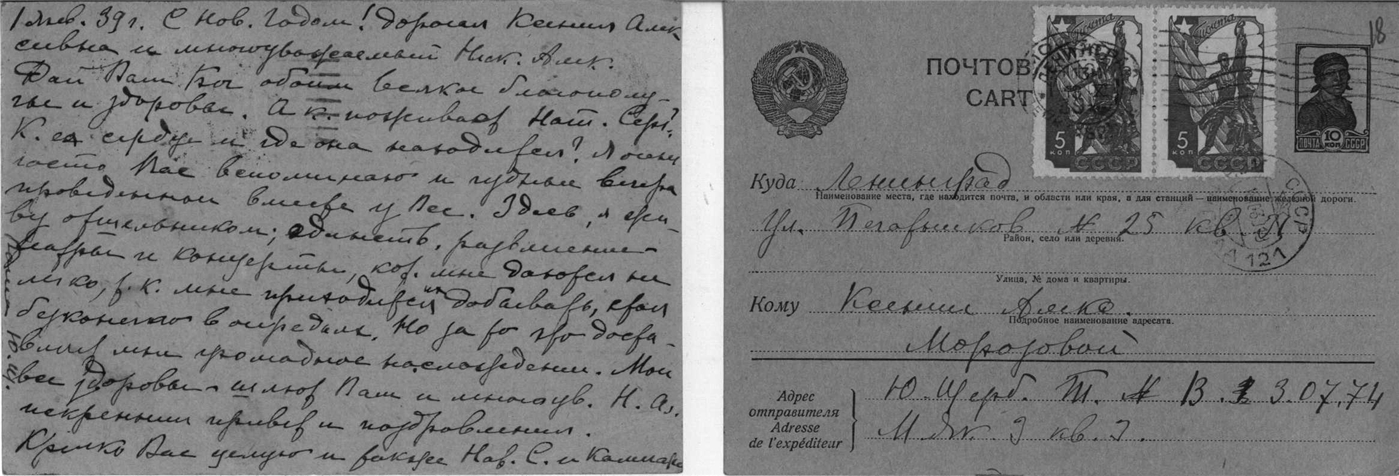 1 Янв. 39 г. С Нов. Годом! Дорогая Ксения Алек
сивна и многоуважаемый Ник. Алек.
Дай Вам Бог обоим всякое благополу-
чье и здоровье. А к. поживает Нат. Серг.?
К. ее сердце и где она находится? Я очень
часто Вас вспоминаю и чудные вечера
проведенные вместе у Вас. Здесь я жи-
ву отшельником; единств. развлечение
театры и концерты, кот. мне даются не
легко, т. к. мне приходится их добывать, стоя
безконечно в очередях. Но за то это доста-
вляет мне громадное наслаждение. Мои
все здоровы - шлют Вам и многоув. Н. Ал.
искренний привет и поздравления.
Крепко Вас целую и также Нат. С. и
18
ПОЧТОВ
CART
ПОЧТА
5 КОП
СССР
ПОЧТА
5 КОП
СССР
10 КОП
ПОЧТА СССР
СССР
121
Куда Ленинград
Наименование места, где находится почта, и области или края, а для станций — наименование железной дороги.
Ул. № 25 кв.
Район, село или деревня.
Улица, № дома и квартиры.
Кому Ксении Алекс.
Подробное наименование адресата.
Морозовой
Адрес
отправителя
Adresse
de l'expéditeur
Ю. Щерб. Т. № В. 3.07.74
М. 3 кв. 3.